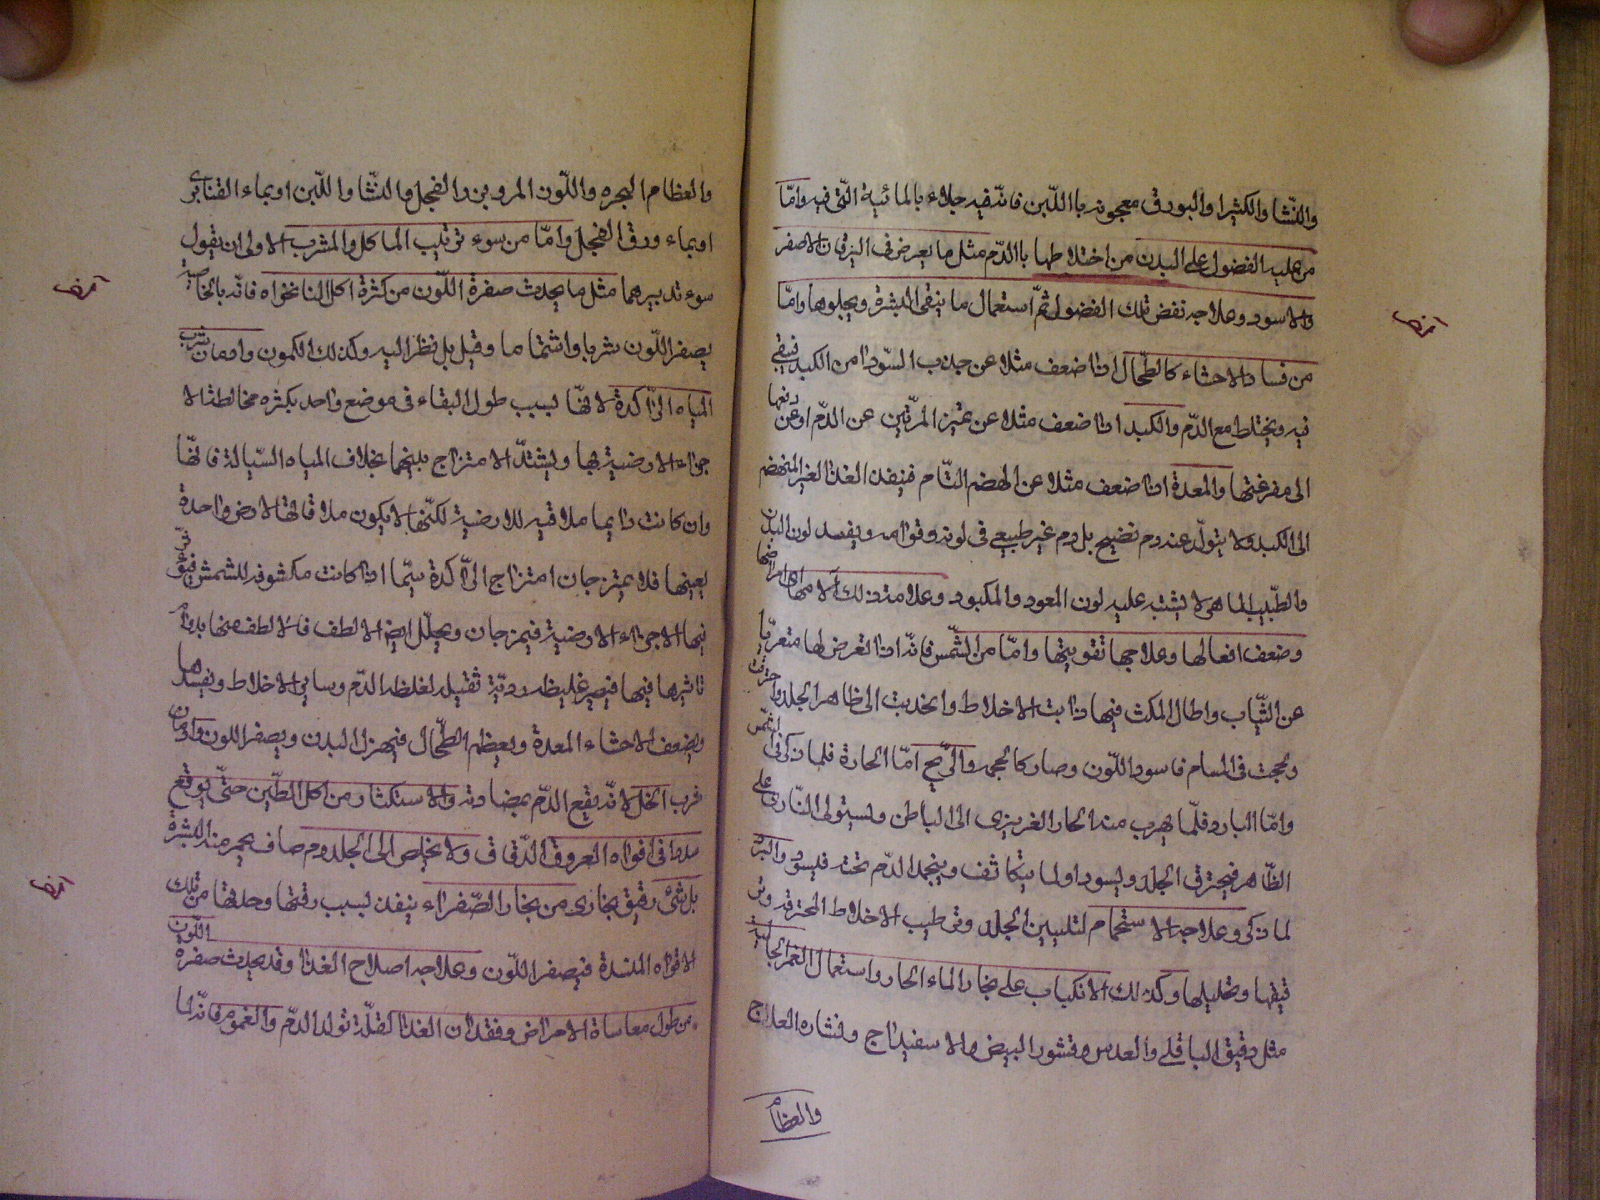 والنّشا والكثيرا والبورق معجونه باللّبن فانّ فيه جلاء بالمائية الّتى فيه وامّا
من غلبه الفضول على البدن من اختلاطها بالدّم مثل ما يعرض فى اليرقان الاصفر
والاسود وعلاجه نفض تلك الفضول ثمّ استعمال ما ينقى البشرة ويجلوها وامّا
من فساد الاحشاء كالطّحال اذا ضعف مثلا عن جذب السّودا من الكبد فيبقى
فيه ويختلط مع الدّم والكبد اذا ضعف مثلا عن تميز المرّتين عن الدّم او عن دفعها
الى مفرغتها والمعدة اذا ضعف مثلا عن الهضم التّام فينفذ الغذا الغير المنهضم
الى الكبد ولا يتولّد عنه دم نضيج بل دم غير طبيعى فى لونه وقوامه ويفسد لون البدن
والطّبيب الماهر لا يشتبه عليه لون الممعود والمكبود وعلامة ذلك آلامها امراضها
وضعف افعالها وعلاجها تقويتها وامّا من الشّمس فانّه اذا تعرض لها متعرّيا
عن الثّياب واطال المكث فيها ذابت الاخلاط وانجذبت الى ظاهر الجلد واحترقت
ولحجت فى المسام فاسود اللّون وصار كالحجر والرّيح امّا الحارة فلما ذكر فى الشّمس
وامّا البارد فلمّا يهرب منه الحار الغريزى الى الباطن ويستولى النّارى على
الظّاهر فيحترق الجلد ويسود او لما يتكاثف وينجمد الدّم تحته فيسود والبرد
لما ذكر وعلاجه الاستحمام لتليين الجلد وترطيب الاخلاط المحترقه وتر
قيقها وتحليلها وكذلك الانكباب على بخار الماء الحار واستعمال الغمر الجاليه
مثل دقيق الباقلى والعدس وقشور البيض والاسفيداج ونشاره العاج
والعظام
والعظام النخره واللّون المر وبزر الفجل والنّشا واللّبن او بماء القنابرى
او بماء ورق الفجل وامّا من سوء ترتيب الماكل والمشرب الاولى ان يقول
سوء تدبيرهما مثل ما يحدث صفرة اللّون من كثرة اكل النانخواه فانّه بالخاصيه
يصفر اللّون شربا واشتماما وقيل بل نظر اليه وكذلك الكمون وادمان شرب
المياه الرّاكدة لانّها لسبب طول البقاء فى موضع واحد يكثره مخالطة الا
جزاء الارضية بها ويشتدّ الامتزاج بينهما بخلاف المياه السّيالة فانّها
وان كانت دايما ملاقيه للارضية لكنّها لا يكون ملاقاتها الارض واحدة
بعينها فلا يمتزجان امتزاج الرّاكدة سيّما اذا كانت مكشوفه للشمس فيؤثّر
فيها الاجزاء الارضية فيمزجان ويحلّل ايضا الالطف فالالطف منها بدوام
تاثيرها فيها فيصير غليظه رديّة ثقيله لغلظ الدّم وساير الاخلاط ويفسدها
ويضعف الاحشاء المعدة ويعظم الطّحال فيهزل البدن ويصفر اللون وادمان
شرب الخل لانّه يقع الدّم بمضادته والاستكثار من اكل الطّين حتّى يوقع
سددا فى افواه العروق الدّقاق ولا يخلص الى الجلد دم صاف يحمر منه البشرة
بل شىء رقيق بخارى من بخار الصّفراء ينفذ لسبب رقتها وحدتها من تلك
الافواه المنسدة فيصفر اللّون وعلاجه اصلاح الغذا وقد يحدث صفرة اللّون
من طول معاساة الامراض وفقدان الغذا لقلّة تولد الدّم والغموم فانّها